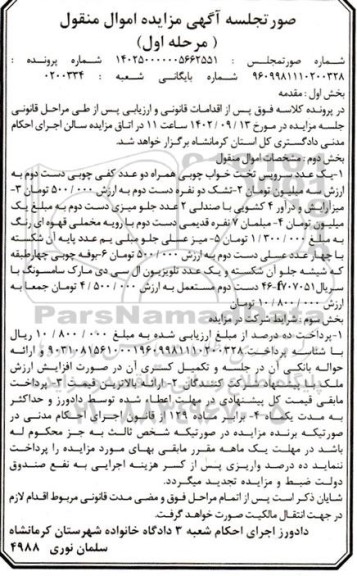 صورتجلسه آگهی مزایده اموال منقول
( مرحله اول)
شماره صورتمجلس : ۱۴۰۲۵۰۰۰۰۰۰۵۶۶۲۵۵۱ شماره پرونده :
۹۶۰۹۹۸۱۱۱۰۲۰۰۳۲۸ شماره بایگانی شعبه : ۰۲۰۰۳۳۴
بخش اول : مقدمه
در پرونده کلاسه فوق پس از اقدامات قانونی و ارزیابی پس از طی مراحل قانونی
جلسه مزایده در مورخ ۱۴۰۲/۰۹/۱۳ ساعت ۱۱ در اتاق مزایده سالن اجرای احکام
مدنی دادگستری کل استان کرمانشاه برگزار خواهد شد.
بخش دوم : مشخصات اموال منقول
۱-یک عدد سرویس تخت خواب چوبی همراه دو عدد کفی چوبی دست دوم به
ارزش میلیون تومان ۲-تشک دو نفره دست دوم به ارزش ۵۰۰/۰۰۰ تومان ۳-
میزآرایش و درآور ۴ کشویی با صندلی ۲ عدد جلو میزی دست دوم به مبلغ یک
میلیون تومان ۴- مبلمان ۷ نفره قدیمی دست دوم با رویه مخملی قهوه ای رنگ
به مبلغ ۱/۳۰۰/۰۰۰ تومان ۵- میز عسلی جلو مبلی یم عدد پایه آن شکسته
با چهار عدد عسلی دست دوم به ارزش ۵۰۰/۰۰۰ تومان ۶-بوفه چوبی چهارطبقه
که شیشه جلو آن شکسته و یک عدد تلویزیون ال سی دی مارک سامسونگ با
سریال ۴۶-۴۷۰۷۰۵۱ دست دوم مستعمل به ارزش ۴/۵۰۰/۰۰۰ تومان جمعا به
ارزش ۱۰/۸۰۰/۰۰۰ تومان
بخش سوم : شرایط شرکت در مزایده
۱-پرداخت ده درصد از مبلغ ارزیابی شده به مبلغ ۱۰/۸۰۰/۰۰۰ ریال
با شناسه پرداخت و ارائه
حواله بانکی آن در جلسه و تکمیل کسری آن در صورت افزایش ارزش
ملک با پیشنهاد شرکت کنندگان ۲- ارائه بالاترین قیمت ۳- پرداخت
مابقی قیمت کل پیشنهادی در مهلت اعطاء شده توسط دادورز و حداکثر
به مدت یکماه ۴- برابر ماده ۱۲۹ از قانون اجرای احکام مدنی در
صورتیکه برنده مزایده در صورتیکه شخص ثالث به جز محکوم له
باشد در مهلت یک ماهه مقرر مابقی بهای مورد مزایده را پرداخت
ننماید ده درصد واریزی پس از کسر هزینه اجرایی به نفع صندوق
دولت ضبط و مزایده تجدید میگردد.
شایان ذکر است پس از اتمام مراحل فوق و مضی مدت قانونی مربوط اقدام لازم
در جهت انتقال مالکیت صورت خواهد گرفت.
دادورز اجرای احکام شعبه ۳ دادگاه خانواده شهرستان کرمانشاه
سلمان نوری ۴۹۸۸